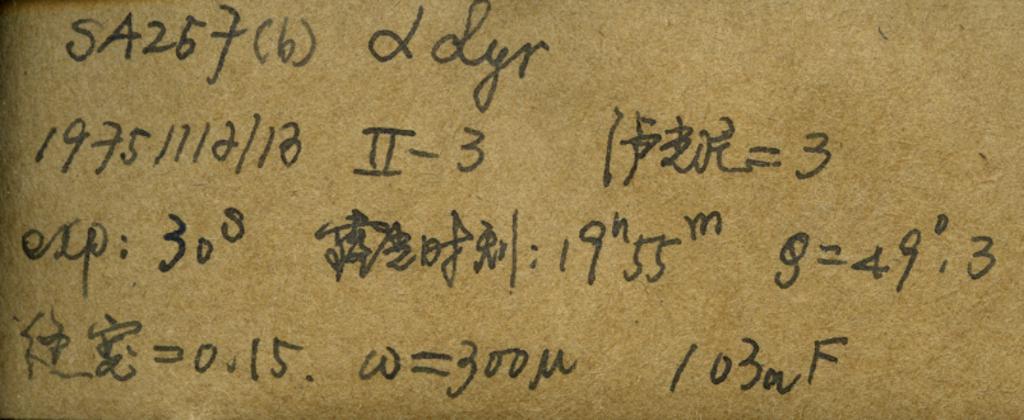 SA257(b) α Lyr
1975 11 12/13 II-3 滤光片=3
exp: 30ˢ 露光时刻: 19ʰ55ᵐ θ=49°.3
缝宽=0.15. ω=300μ 103aF